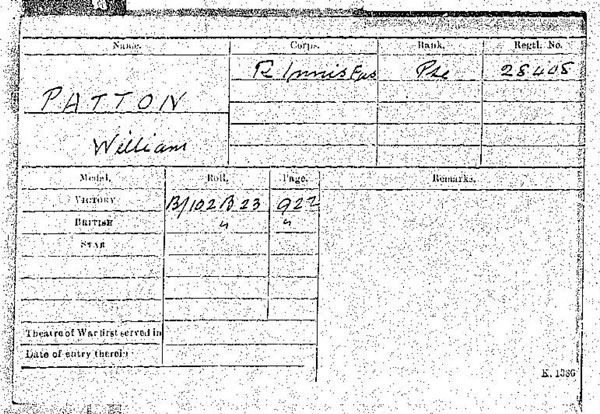 Name. Corps. Rank. Regtl. No.
R Innis Fus Pte 28408
PATTON
William
Medal. Roll. Page. Remarks.
VICTORY B/102 B23 922
BRITISH " "
STAR
Theatre of War first served in
Date of entry therein
K. 1386